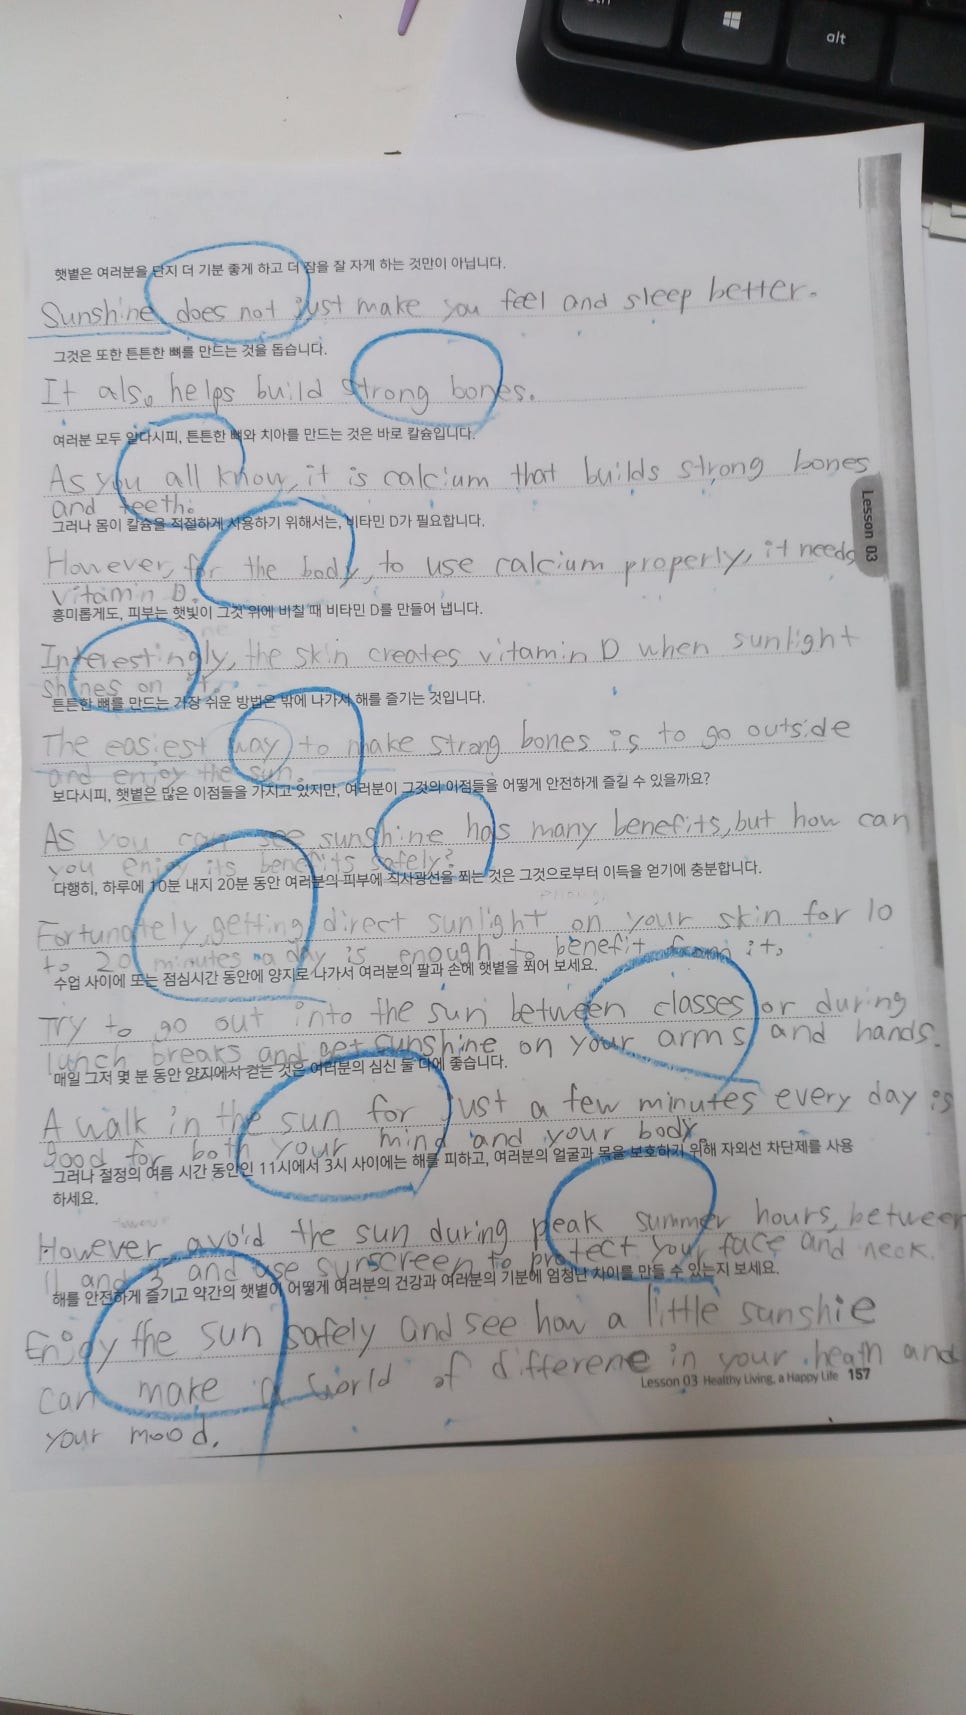 alt
햇볕은 여러분을 단지 더 기분 좋게 하고 더 잠을 잘 자게 하는 것만이 아닙니다.
Sunshine does not just make you feel and sleep better.
그것은 또한 튼튼한 뼈를 만드는 것을 돕습니다.
It also helps build strong bones.
여러분 모두 알다시피, 튼튼한 뼈와 치아를 만드는 것은 바로 칼슘입니다.
As you all know, it is calcium that builds strong bones
and teeth.
Lesson 03
그러나 몸이 칼슘을 적절하게 사용하기 위해서는, 비타민 D가 필요합니다.
However, for the body, to use calcium properly, it needs
vitamin D.
흥미롭게도, 피부는 햇빛이 그것 위에 비칠 때 비타민 D를 만들어 냅니다.
Interestingly, the skin creates vitamin D when sunlight
shines on it.
튼튼한 뼈를 만드는 가장 쉬운 방법은 밖에 나가서 해를 즐기는 것입니다.
The easiest way to make strong bones is to go outside
and enjoy the sun.
보다시피, 햇볕은 많은 이점들을 가지고 있지만, 여러분이 그것의 이점들을 어떻게 안전하게 즐길 수 있을까요?
As you can see sunshine has many benefits, but how can
you enjoy its benefits safely?
다행히, 하루에 10분 내지 20분 동안 여러분의 피부에 직사광선을 쬐는 것은 그것으로부터 이득을 얻기에 충분합니다.
Fortunately, getting direct sunlight on your skin for 10
to 20 minutes a day is enough to benefit from it.
수업 사이에 또는 점심시간 동안에 양지로 나가서 여러분의 팔과 손에 햇볕을 쬐어 보세요.
Try to go out into the sun between classes or during
lunch breaks and get sunshine on your arms and hands.
매일 그저 몇 분 동안 양지에서 걷는 것은 여러분의 심신 둘 다에 좋습니다.
A walk in the sun for just a few minutes every day is
good for both your mind and your body.
그러나 절정의 여름 시간 동안인 11시에서 3시 사이에는 해를 피하고, 여러분의 얼굴과 목을 보호하기 위해 자외선 차단제를 사용
하세요.
However, avoid the sun during peak summer hours, between
11 and 3 and use sunscreen to protect your face and neck.
해를 안전하게 즐기고 약간의 햇볕이 어떻게 여러분의 건강과 여러분의 기분에 엄청난 차이를 만들 수 있는지 보세요.
Enjoy the sun safely and see how a little sunshie
can make a world of differene in your heath and
Lesson 03 Healthy Living, a Happy Life 157
your mood.